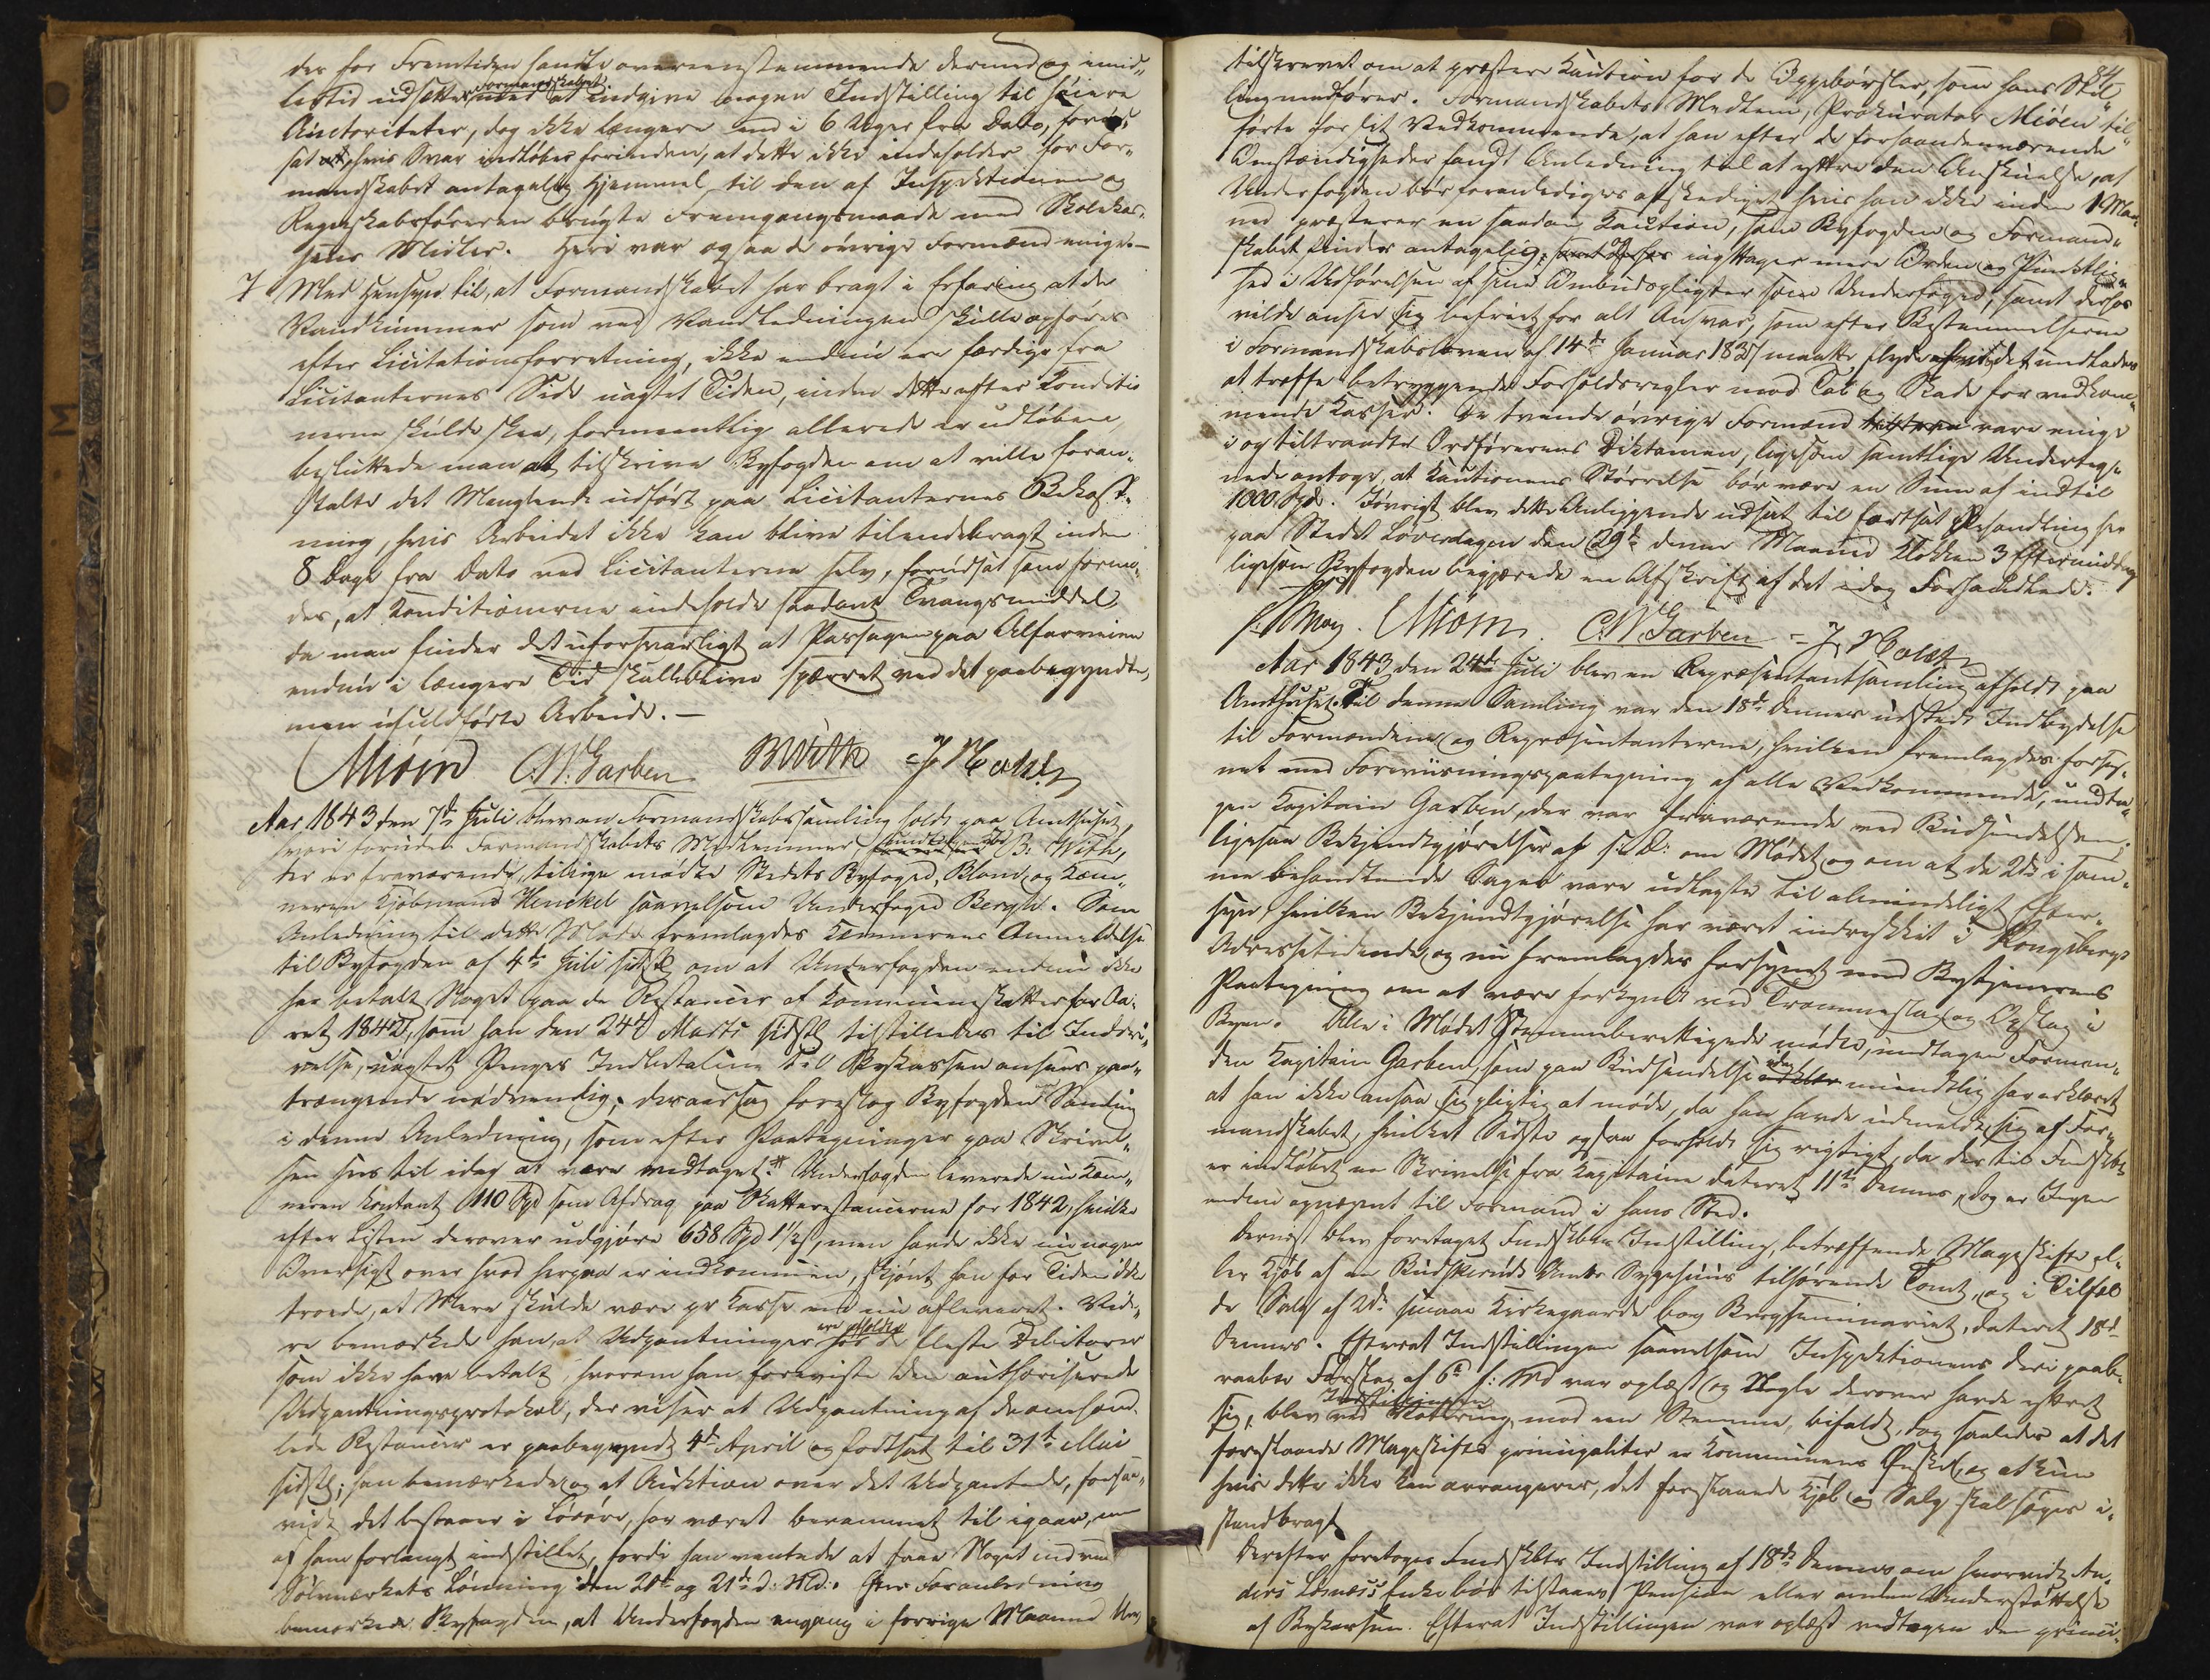 der for Fremtiden handle overeensstemmende dermed og imid„
lertid udsætter Formandskabet med at indgive nogen Indstilling til høiere
Auctoriteter, dog ikke længere end i 6 Uger fra Dato, forud„
sat at, hvis Svar indløber forinden, at dette ikke indeholder for For„
mandskabet antagelig Hjemmel til den af Inspectionen og
Regnskabsføreren brugte Fremgangsmaade med Skolekas„
sens Midler. Heri var ogsaa de øvrige Formænd enige.—
7 Med Hensyn til, at Formandskabet har bragt i Erfaring at de
Vandkummer som ved Vandledningen skulle opføres
efter Licitationsforretning, ikke endnu ere færdige fra
Licitanternes Side uagtet Tiden, inden dette efter Conditio
nerne skulde skee, formeentlig allerede er udløben,
besluttede man at tilskrive Byfogden om at ville foran„
stalte det Manglende udført paa Licitanternes Bekost„
ning, hvis Arbeidet ikke kan blive tilendebragt inden
8 Dage fra Dato ved Licitanterne selv, forudsat som formo„
des, at Konditionerne indeholde saadant Tvangsmiddel,
da man finder det uforsvarligt at Passagen paa Alfarveien
endnu i længere Tid skulle blive spærret ved det paabegyndte,
men ufuldførte Arbeide.—
Miöen C.N. Garben B With J Holst
Aar 1843 den 7de Juli blev en Formandskabssamling holdt paa Amthuset,
hvori foruden Formandskabets Medlemmer, undtagen B: With,
der er fraværende, tillige mødte Stedets Byfoged, Blom, og Kæm„
neren Kjøbmand Henckel saavelsom Underfoged Bergh. Som
Anledning til dette Møde fremlagdes Kæmnerens Anmeldelse
til Byfogden af 4de Juli sidstl om at Underfogden endnu ikke
har betalt Noget paa de Restancer af Kommuneskatter for Aa„
ret 1842, som han den 24de Marts sidstl tilstilledes til Inddri„
velse, uagtet Penges Indbetaling til Bykassen ansees paa„
trængende nødvendig; deraarsag foreslog Byfogden Samling
i denne Anledning, som efter Paategninger paa Skrivel„
sen sees til idag at være vedtaget. Underfogden leverede nu Kæm„
neren contant 110 Spd som Afdrag paa Skatterestancerne for 1842, hvilke
efter Listen derover udgjøre 658 Spd 1 1/2 s, men havde ikke nu nogen
Oversigt over hvad herpaa er indkommen, skjønt han for Tiden ikke
troede, at Mere skulde være pr Kasse end nu afleveret. Vide„
re bemærkede han, at Udpantninger ere afholdte hos de fleste Debitorer
som ikke have betalt, hvorom han foreviste den authoriserede
Udpantningsprotokol, der viser at Udpantning af de omhand„
lede Restancer er paabegyndt 4de April og fortsat til 31te Mai
sidstl; han bemærkede og at Auktion over det Udpantede, forsaa„
vidt det bestaaer i Løsøre, har været berammet til igaar, men
af ham forlangt indstillet, fordi han ventede at faae Noget ind ved
Sølvværkets Lønning den 20de og 21de d: Md:. Efter Foranledning
bemærkede Byfogden, at Underfogden engang i forrige Maaned blev
84
tilskrevet om at præstere Kaution for de Oppebørsler, som hans Stil„
ling medfører. Formandskabets Medlem, Prokurator Miöen til„
førte for sit Vedkommende, at han efter de forhaandenværende
Omstændigheder fandt Anledning til at yttre den Anskuelse, at
Underfogden bør foranlediges afskediget hvis han ikke inden 1 Maa„
ned præsterer en saadan Kaution, som Byfogden og Formand„
skabet finder antagelig, samt derhos iagttager mere Orden og Punctlig„
hed i Udførelsen af sine Ombudspligter som Underfoged, samt derhos
vilde anser sig befriet for alt Ansvar, som efter Bestemmelserne
i Formandskabsloven af 14de Januar 1837 maatte flyde af det undlades
at træffe betryggende Forholdsregler mod Tab og Skade for vedkom„
mende Kasser. De tvende øvrige Formænd vare enige
i og tiltraadte Ordførerens Dictamen, ligesom samtlige Underteg„
nede antoge, at Kautionens Størrelse bør være en Sum af indtil
1000 Spd. Iøvrigt blev dette Anliggende udsat til fortsat Behandling her
paa Stedet Løverdagen den 29de denne Maaned Klokken 3 Eftermiddag
ligesom Byfogden begjærede en Afskrift af det idag Forhandlede.
Miöen. C.N. Garben J Holst
Aar 1843 den 24de Juli blev en Repræsentantsamling afholdt paa
Amthuset. Til denne Samling var den 18de dennes udstedt Indbydelse
til Formændene og Repræsentanterne, hvilken fremlagdes forsy„
net med Foreviisningspaategning af alle Vedkommende, undta„
gen Kapitain Garben, der var fraværende ved Budsendelsen;
ligesaa Bekjendtgjørelse af s: D: om Mødet og om at de 2de i sam„
me behandlende Sager vare udlagte til almindeligt Efter„
syn, hvilken Bekjendtgjørelse har været indrykket i Kongsbergs
Adressetidende, og nu fremlagdes forsynet med Bytjenerens
Paategning om at være forkyndt ved Trommeslag og Opslag i
Byen. Alle i Mødet Stemmeberettigede mødte, undtagen Forman„
den Kapitain Garben, som paa Budsendelse idag mundtlig har erklæret
at han ikke ansaa sig pligtig at møde, da han havde udmeldt sig af For„
mandskabet, hvilket Sidste ogsaa forholdt sig rigtigt, da der til Fmdskbt
er indløbet en Skrivelse fra Kapitainen dateret 11te dennes, dog er Ingen
endnu opnævnt til Formand i hans Sted.
Dernæst blev foretaget Fmdskbts Indstilling, betræffende Mageskifte el„
ler Kjøb af en Buskeruds Amts Sygehuus tilhørende Tomt, og i Tilfæl
de Salg af 2de smaae Kirkegaarde bag Bergseminariet, dateret 18de
dennes. Efterat Indstillingen saavelsom Inspectionens deri paabe„
raabte Forslag af 6te f: Md var oplæst og Nogle derover havde yttret
sig, blev Indstillingen ved Votering, mod een Stemme, bifaldt, dog saaledes at det
foreslaaede Mageskifte principaliter er Kommunens Ønske, og at kun
hvis dette ikke kan arrangeres, det foreslaaede Kjøb og Salg skal søges i„
standbragt
Derefter foretoges Fmdskbts Indstilling af 18de dennes om hvorvidt An„
ders Enke bør tilstaaes Pension eller anden Understøttelse
af Bykassen. Efterat Indstillingen var oplæst vedtoges den princi„